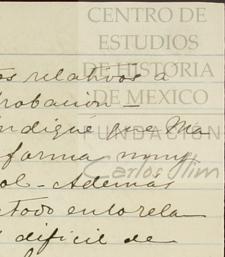 CENTRO DE
ESTUDIOS
DE HISTORIA
DE MEXICO
FUNDACIÓN
Carlos Slim
os relativos a
robación -
indiqué que Ma
forma muy
ol - Ademas
todo en lo rela
difícil de